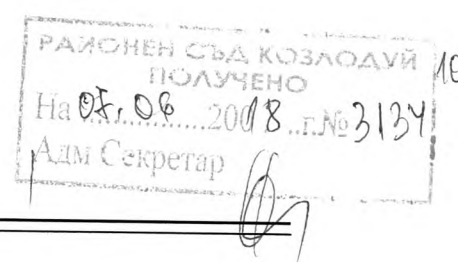 РАЙОНЕН СЪД КОЗЛОДУЙ
ПОЛУЧЕНО
На 07.06 2018 г.№ 3134
Адм Секретар